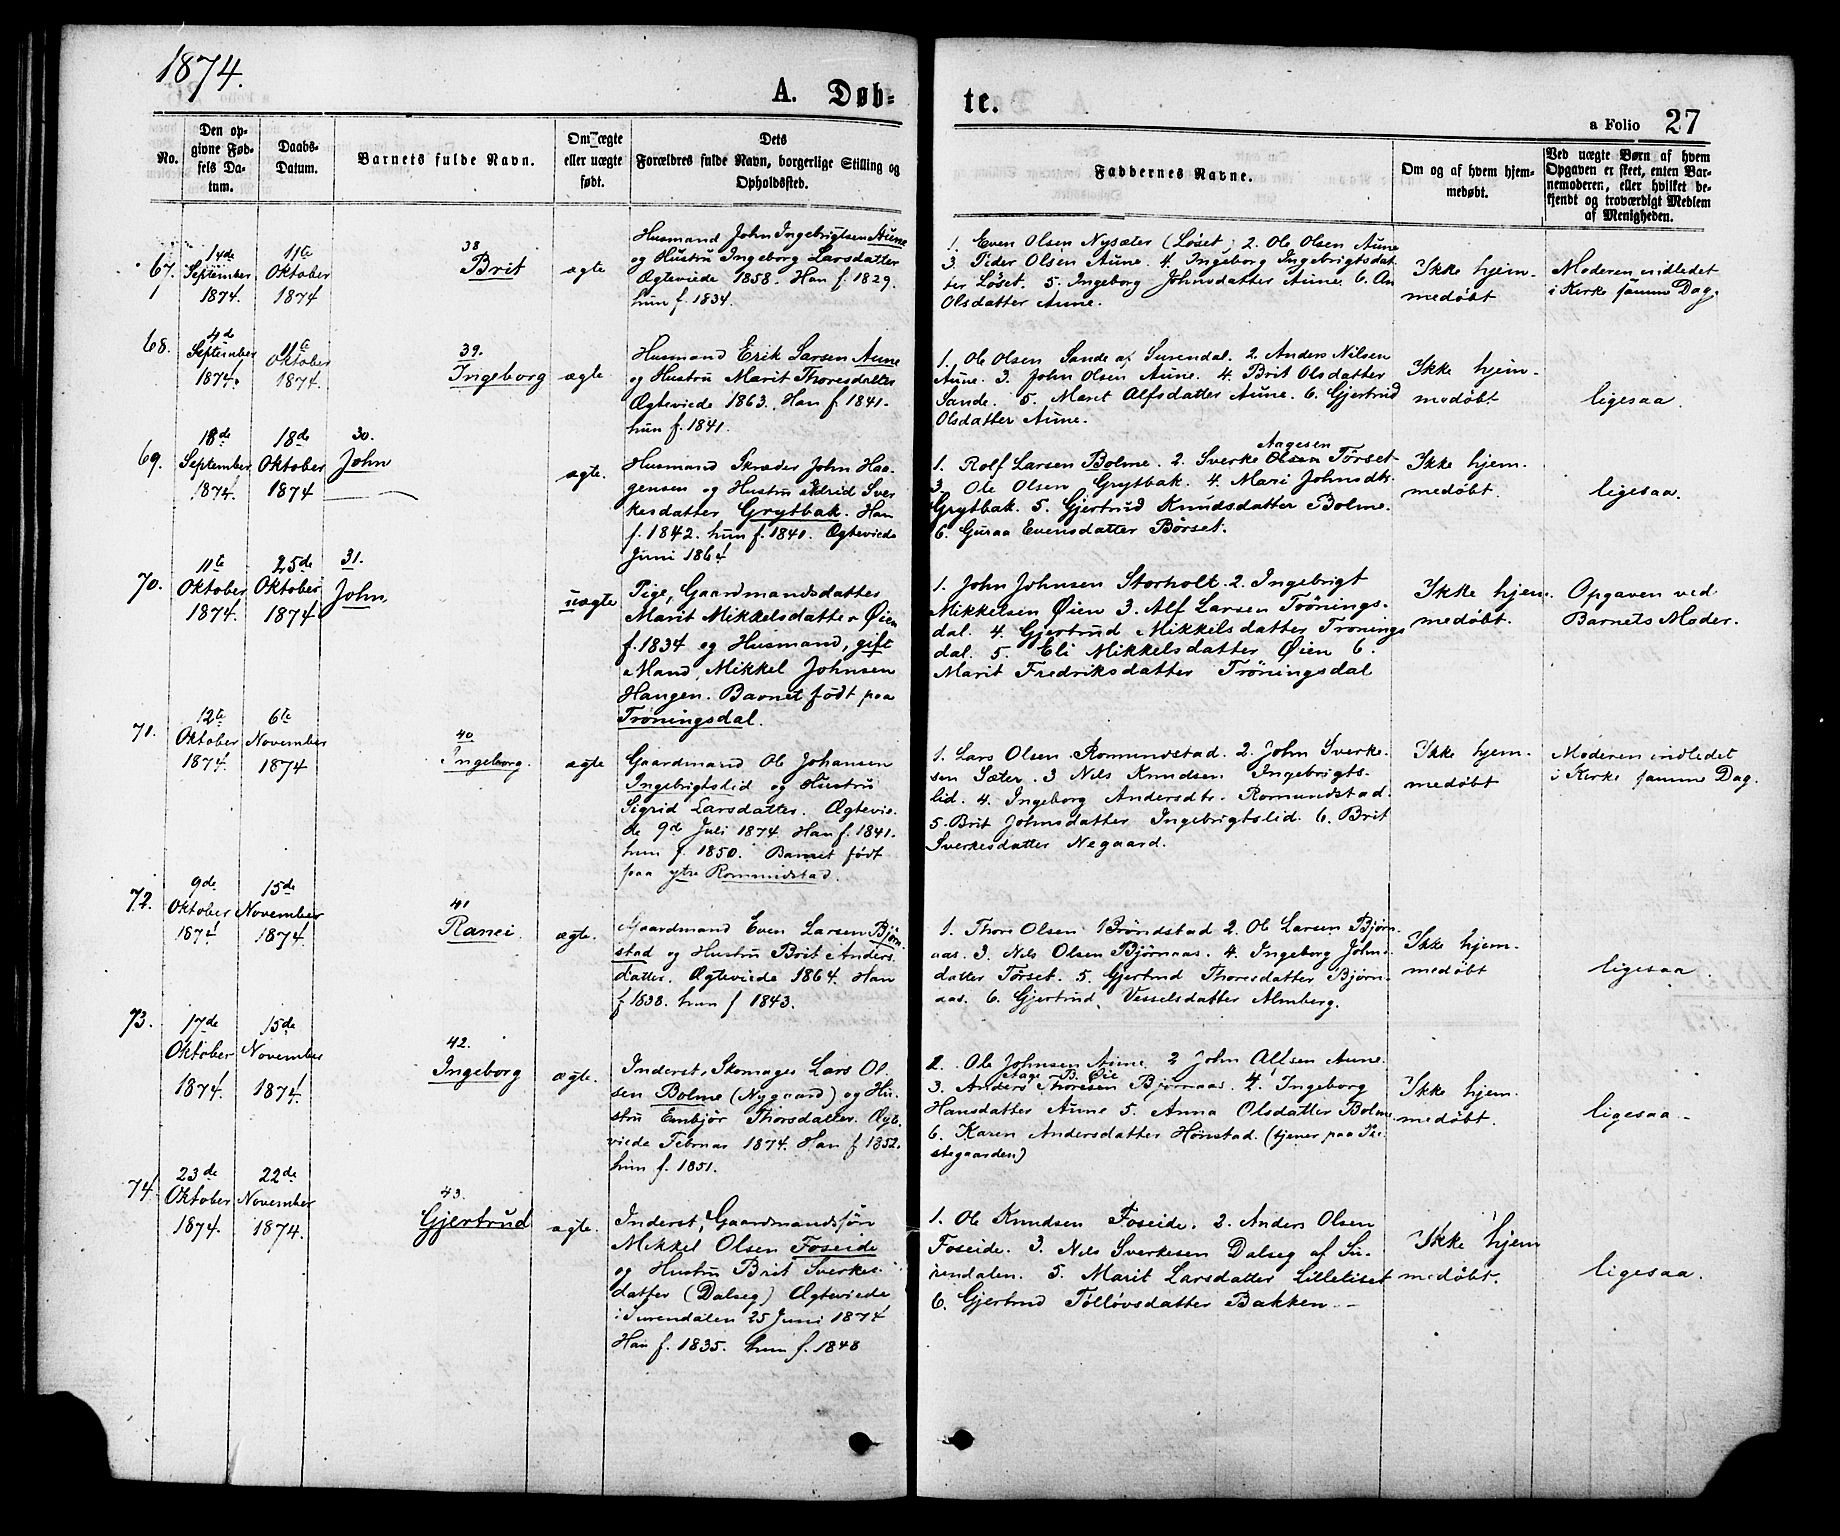 1874.
A. Døb=
te.
a Folio 27
No.
Den op-
givne Fød-
sels Da-
tum.
Daabs-
Datum.
Barnets fulde Navn.
Om ægte
eller uægte
født.
Dets
Forældres fulde Navn, borgerlige Stilling og
Opholdssted.
Faddernes Navne.
Om og af hvem hjem-
medøbt.
Ved uægte Børn af hvem
Opgaven er skeet, enten Bar-
nemoderen, eller hvilket be-
kjendt og troværdigt Medlem
af Menigheden.
67.
14de
September
1874.
11te
Oktober
1874
38
Brit
ægte
Husmand John Ingebrigtsen Aune
og Hustru Ingeborg Larsdatter
Ægteviede 1858. Han f. 1829.
hun f. 1834.
1. Even Olsen Nysæter (Løset) 2. Ole Olsen Aune
3. Peder Olsen Aune. 4. Ingeborg Ingebrigtsdat
ter Løset. 5. Ingeborg Johnsdatter Aune. 6. An
Olsdatter Aune.
Ikke hjem-
medøbt
Moderen indledet
i Kirke samme Dag.
68.
4de
September
1874.
11te
Oktober
1874.
39.
Ingeborg
ægte
Husmand Erik Larsen Aune
og Hustru Marit Thoresdatter
Ægteviede 1863. Han f. 1841.
hun f. 1841.
1. Ole Olsen Sande af Surendal. 2. Anders Nilsen
Aune. 3. John Olsen Aune. 4. Brit Olsdatter
Sande. 5. Marit Alfsdatter Aune. 6. Gjertrud
Olsdatter Aune.
Ikke hjem-
medøbt
ligesaa.
69.
18de
September
1874.
18de
Oktober
1874
30.
John
ægte.
Husmand Skræder John Haa-
gensen og Hustru Sidrid Sver
kesdatter Grytbak. Han
f. 1842. hun f. 1840. Ægteviede
Juni 1864
Aagesen
1. Rolf Larsen Bolme. 2. Sverke Olsen Tørset
3. Ole Olsen Grytbak. 4. Mari Johnsdtr.
Grytbak. 5. Gjertrud Knudsdatter Bolme.
6. Guraa Evensdatter Børset.
Ikke hjem-
medøbt.
ligesaa.
70.
11te
Oktober
1874.
25de
Oktober
1874.
31.
John,
uægte
Pige, Gaardmandsdatter
Marit Mikkelsdatter Øien
f. 1834 og Husmand, gift
Mand, Mikkel Johnsen
Hangen. Barnet født paa
Trøningsdal.
1. John Johnsen Storholt. 2. Ingebrigt
Mikkelsen Øien 3. Alf Larsen Trønings-
dal. 4. Gjertrud Mikkelsdatter Trønings
dal. 5. Eli Mikkelsdatter Øien 6.
Marit Fredriksdatter Trøningsdal
Ikke hjem-
medøbt.
Opgaven ved
Barnets Moder.
71.
12te
Oktober
1874.
6te
November
1874
40
Ingeborg.
ægte
Gaardmand Ole Johansen
Ingebrigtslid og Hustru
Sigrid Larsdatter. Ægtevie-
de 9de Juli 1874. Han f. 1841.
hun f. 1850. Barnet født
paa ytre Romundstad.
1. Lars Olsen Romundstad. 2. John Sverke-
sen Sæter. 3 Nils Knudsen Ingebrigts-
lid. 4. Ingeborg Andersdtr. Romundstad.
5. Brit Johnsdatter Ingebrigtslid. 6. Brit
Sverkesdatter Negaard.
Ikke hjem-
medøbt
Moderen indledet
i Kirke samme Dag.
72.
9de
Oktober
1874
15de
November
1874.
41
Ranei.
ægte.
Gaardmand Even Larsen Bjørn
stad og Hustru Brit Anders
datter. Ægteviede 1864. Han
f 1838. hun f 1843.
1. Thore Olsen Brøndstad 2. Ole Larsen Bjørn
aas. 3. Nils Olsen Bjørnaas. 4. Ingeborg Johns
datter Tørset. 5. Gjertrud Thoresdatter Bjørn-
aas. 6. Gjertrud Vesselsdatter Almberg.
Ikke hjem-
medøbt
ligesaa.
73.
17de
Oktober
1874.
15de
November
1874.
42.
Ingeborg
ægte.
Inderst, Skomager Lars Ol
sen Bolme (Nygaard) og Hu-
stru Embjør Thorsdatter. Ægte
viede Februar 1874. Han f 1852.
hun f. 1851.
1. Ole Johnsen Aune. 2 John Alfsen Aune.
Aage B. Øie
3. Anders Thoresen Bjørnaas. 4. Ingeborg
Hansdatter Aune 5. Anna Olsdatter Bolme
6. Karen Andersdatter Hønstad. (tjener paa Præ
stegaarden)
Ikke hjem-
medøbt.
ligesaa
74.
23de
Oktober
1874.
22de
November
1874.
43.
Gjertrud
ægte.
Inderst, Gaardmandssøn
Mikkel Olsen Foseide
og Hustru Brit Sverkes-
datter (Dalseg) Ægteviede
i Surendalen 25 Juni 1874
Han f. 1835. hun f. 1848
1. Ole Knudsen Foseide. 2. Anders Olsen
Foseide. 3. Nils Sverkesen Dalseg af Su-
rendalen. 5. Marit Larsdatter Lilleliset
6. Gjertrud Tølløvsdatter Bakken.
Ikke hjem
medøbt.
ligesaa.